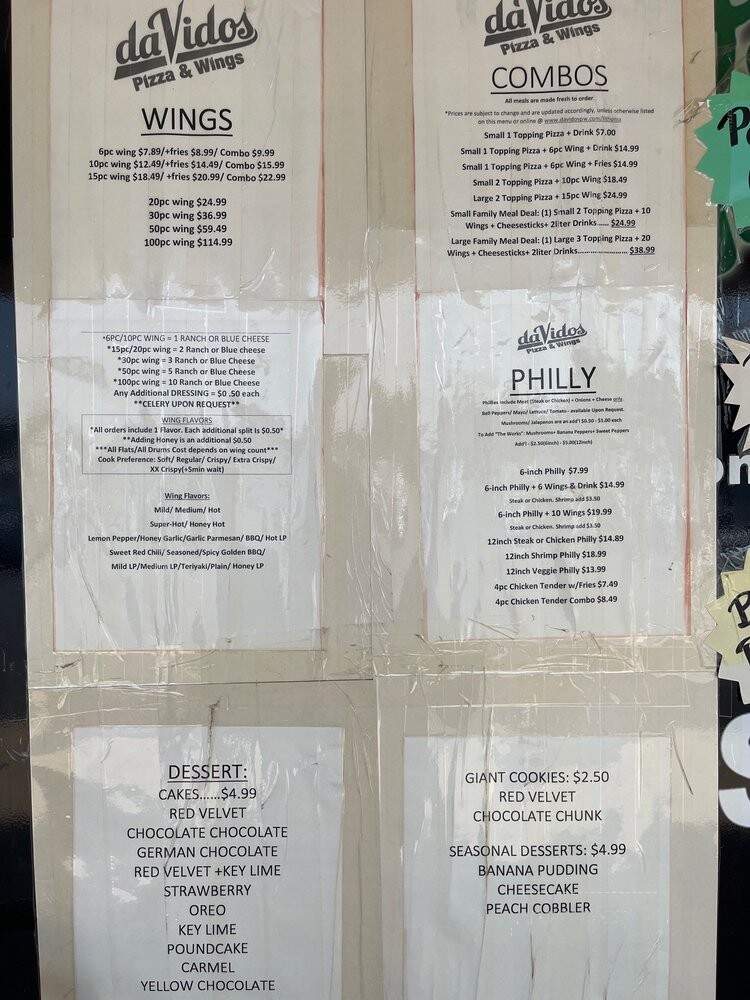 daVidos
Pizza & Wings
WINGS
6pc wing $7.89/+fries $8.99/ Combo $9.99
10pc wing $12.49/+fries $14.49/ Combo $15.99
15pc wing $18.49/ +fries $20.99/ Combo $22.99
20pc wing $24.99
30pc wing $36.99
50pc wing $59.49
100pc wing $114.99
*6PC/10PC WING = 1 RANCH OR BLUE CHEESE
*15pc/20pc wing = 2 Ranch or Blue cheese
*30pc wing = 3 Ranch or Blue Cheese
*50pc wing = 5 Ranch or Blue Cheese
*100pc wing = 10 Ranch or Blue Cheese
Any Additional DRESSING = $0 .50 each
**CELERY UPON REQUEST**
WING FLAVORS
*All orders include 1 Flavor. Each additional split Is $0.50*
**Adding Honey is an additional $0.50
***All Flats/All Drums Cost depends on wing count***
Cook Preference: Soft/ Regular/ Crispy/ Extra Crispy/
XX Crispy(+5min wait)
Wing Flavors:
Mild/ Medium/ Hot
Super-Hot/ Honey Hot
Lemon Pepper/Honey Garlic/Garlic Parmesan/ BBQ/ Hot LP
Sweet Red Chili/ Seasoned/Spicy Golden BBQ/
Mild LP/Medium LP/Teriyaki/Plain/ Honey LP
DESSERT:
CAKES......$4.99
RED VELVET
CHOCOLATE CHOCOLATE
GERMAN CHOCOLATE
RED VELVET +KEY LIME
STRAWBERRY
OREO
KEY LIME
POUNDCAKE
CARMEL
YELLOW CHOCOLATE
daVidos
Pizza & Wings
COMBOS
All meals are made fresh to order.
*Prices are subject to change and are updated accordingly, unless otherwise listed
on this menu or online @
Small 1 Topping Pizza + Drink $7.00
Small 1 Topping Pizza + 6pc Wing + Drink $14.99
Small 1 Topping Pizza + 6pc Wing + Fries $14.99
Small 2 Topping Pizza + 10pc Wing $18.49
Large 2 Topping Pizza + 15pc Wing $24.99
Small Family Meal Deal: (1) Small 2 Topping Pizza + 10
Wings + Cheesesticks+ 2liter Drinks ..... $24.99
Large Family Meal Deal: (1) Large 3 Topping Pizza + 20
Wings + Cheesesticks+ 2liter Drinks........................ $38.99
daVidos
Pizza & Wings
PHILLY
Phillies include Meat (Steak or Chicken) + Onions + Cheese only
Bell Peppers/ Mayo/ Lettuce/ Tomato - available Upon Request.
Mushrooms/ Jalapenos are an add'l $0.50 - $1.00 each
To Add "The Works": Mushrooms+ Banana Peppers+ Sweet Peppers
Add'l - $2.50(6inch) - $5.00(12inch)
6-inch Philly $7.99
6-inch Philly + 6 Wings & Drink $14.99
Steak or Chicken. Shrimp add $3.50
6-inch Philly + 10 Wings $19.99
Steak or Chicken. Shrimp add $3.50
12inch Steak or Chicken Philly $14.89
12inch Shrimp Philly $18.99
12inch Veggie Philly $13.99
4pc Chicken Tender w/Fries $7.49
4pc Chicken Tender Combo $8.49
GIANT COOKIES: $2.50
RED VELVET
CHOCOLATE CHUNK
SEASONAL DESSERTS: $4.99
BANANA PUDDING
CHEESECAKE
PEACH COBBLER